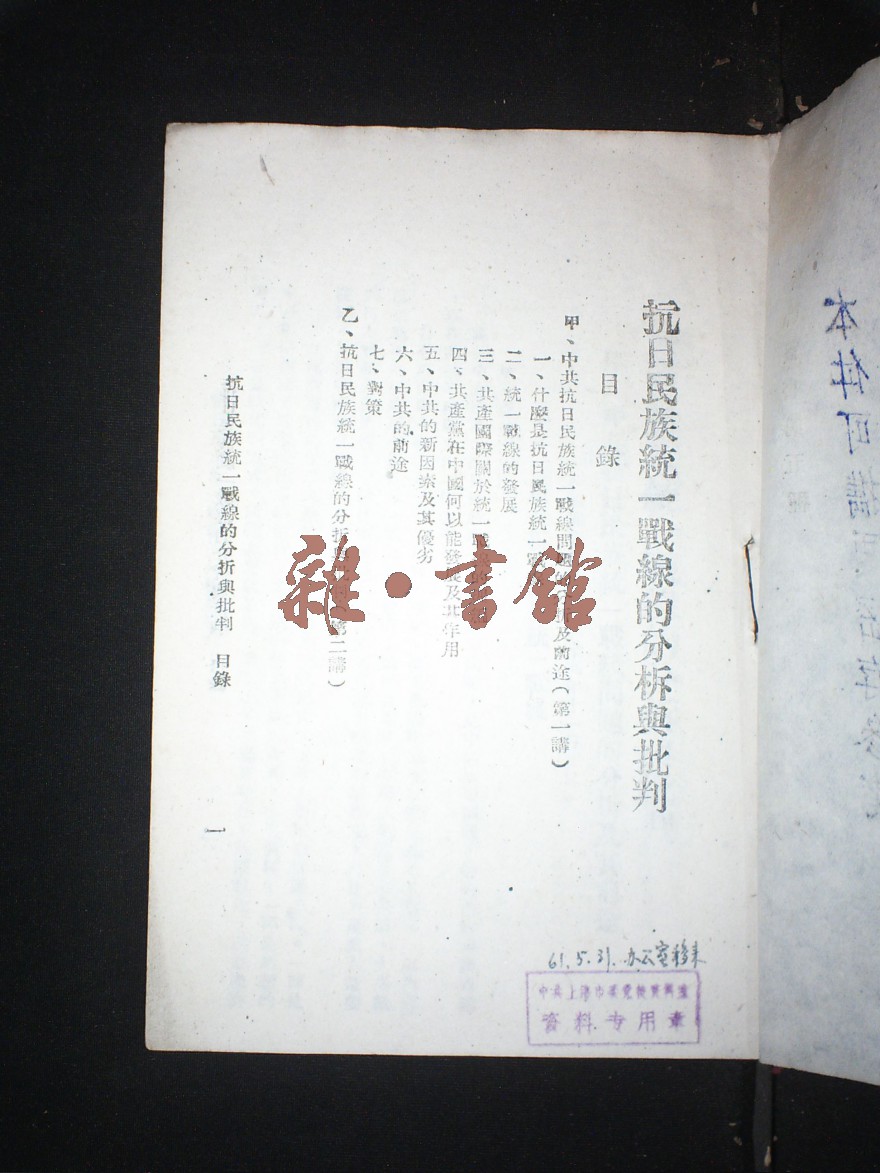 抗日民族統一戰線的分析與批判
目錄
甲、中共抗日民族統一戰線問題 及前途(第一講)
一、什麼是抗日民族統一戰
二、統一戰線的發展
三、共產國際關於統一戰
四、共產黨在中國何以能發展及其作用
五、中共的新因素及其優劣
六、中共的前途
七、對策
乙、抗日民族統一戰線的分折 第二講)
抗日民族統一戰線的分折與批判 目錄
一
雜·書館
61.5.31.办公室移来
中共上海市委党校資料室
資料专用章
本件可